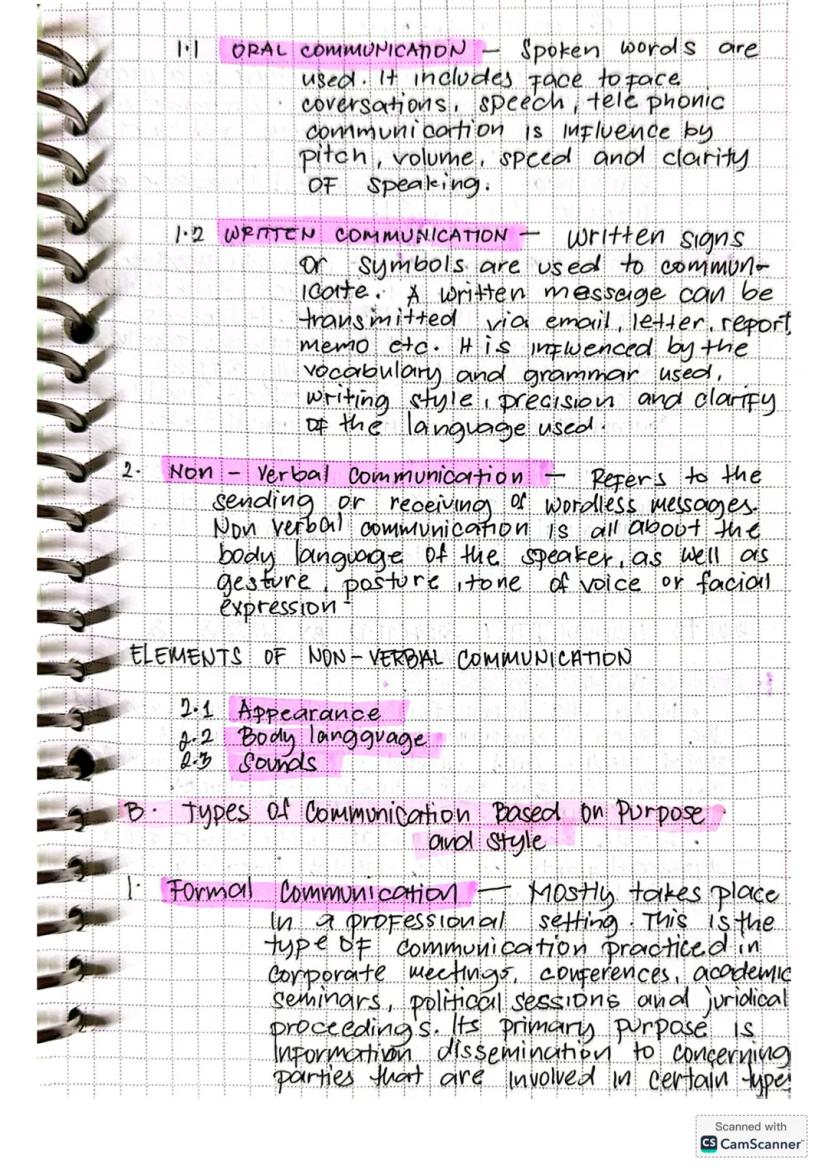 1.1 ORAL COMMUNICATION - Spoken words are
used. It includes face to face
coversations, speech, tele phonic
communication is influence by
pitch, volume, speed and clarity
OF speaking.
1.2 WRITTEN COMMUNICATION - written signs
or symbols are used to commun-
icate. A written message can be
transmitted via email, letter, report,
memo etc. It is influenced by the
vocabulary and grammar used,
writing style, precision and clarity
of the language used.
2. Non - Verbal Communication - Refers to the
sending or receiving of wordless messages.
Non verbal communication is all about the
body language of the speaker, as well as
gesture, posture, tone of voice or facial
expression-
ELEMENTS OF NON-VERBAL COMMUNICATION
2.1 Appearance
2.2 Body langguage
2.3 Sounds
B. Types of Communication Based on Purpose
and Style
1. Formal Communication - Mostly takes place
in a professional setting. This is the
type of communication practiced in
corporate meetings, conferences, academic
seminars, political sessions and juridical
proceedings. Its primary purpose is
information dissemination to concerning
parties that are involved in certain type
Scanned with
CS CamScanner